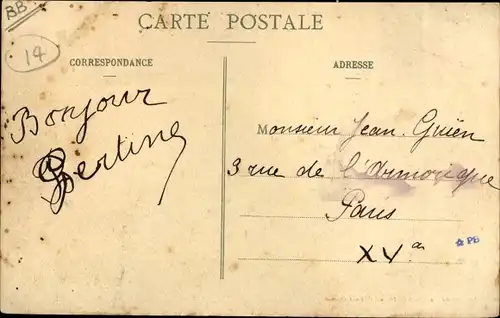 BB
14
CARTE POSTALE
CORRESPONDANCE
ADRESSE
Bonjour
Bertine
Monsieur Jean Guien
3 rue de l'Armorique
Paris
XVe
Pb